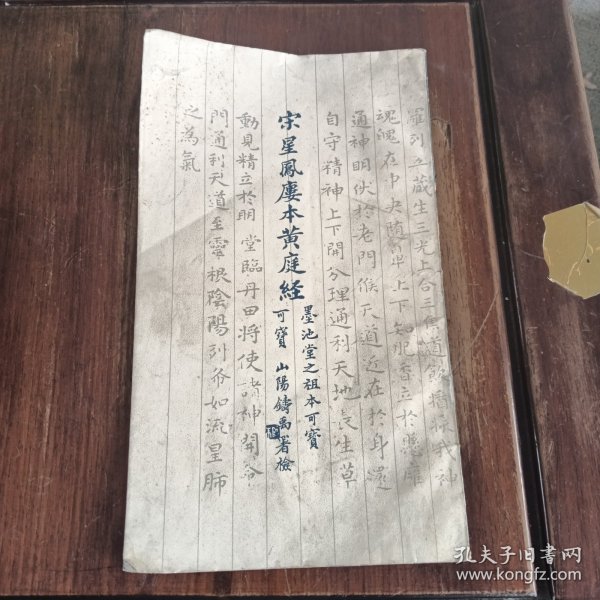 羅列五藏生三光上合三焦道飲醬漿我神
魂魄在中央随鼻上下知肥香立於懸雍
通神明伏於老門候天道近在於身還
自守精神上下開分理通利天地長生草
宋星鳳廔本黄庭経
墨池堂之祖本可寶
可寶 山陽鑄禹署檢
動見精立於明堂臨丹田將使諸神開命
門通利天道至靈根陰陽列布如流星肺
之為氣
孔夫子旧书网
www.kongfz.com